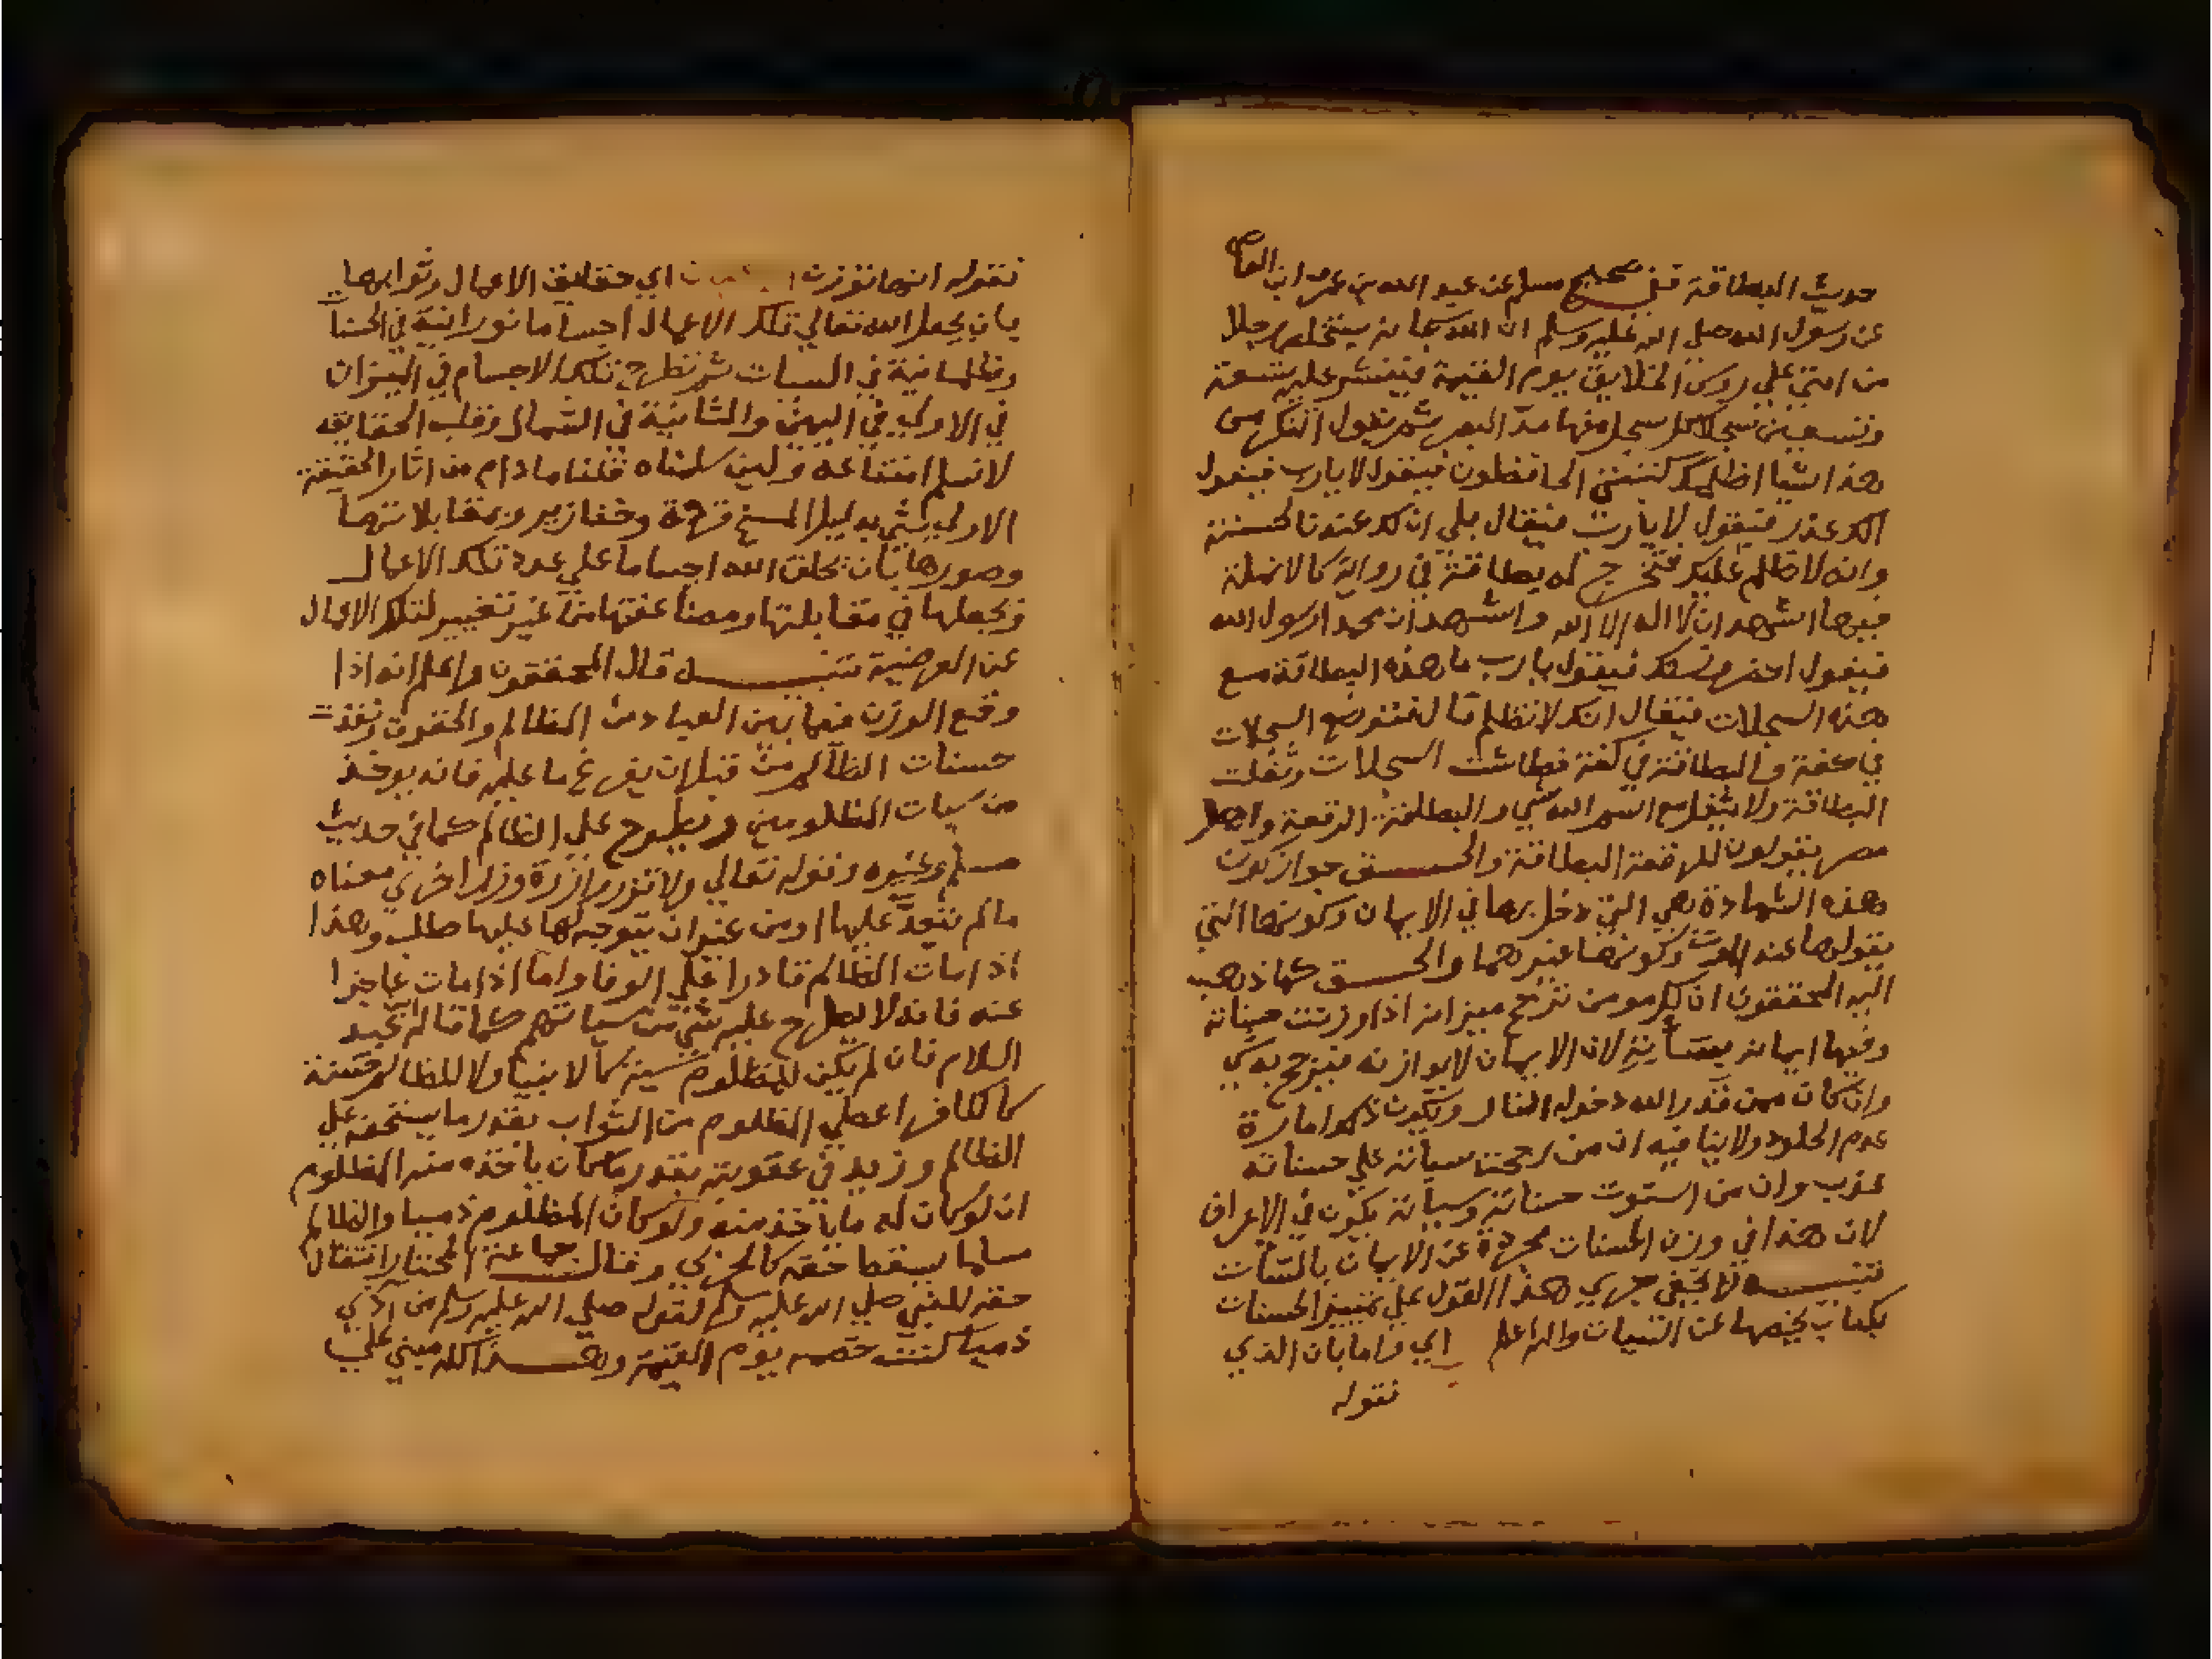 حديث البطاقة ففي صحيح مسلم عن عبد الله بن عمرو ابن العاص
عن رسول الله صلي الله عليه وسلم ان الله سبحانه سيخلص رجلا
من امتي علي روس الخلايق يوم القيمة فينشر عليه تسعة
وتسعين سجلا كل سجل منها مد البصر ثم يقول اتنكر من
هذا شيا اظلمك كتبتي الحافظون فيقول لا يارب فيقول
الك عذر فيقول لا يا رب فيقال بلي ان لك عندنا لحسنة
وانه لا ظلم عليك فتخرج له بطاقة في رواية كالانملة
فيها اشهد ان لا اله الا الله واشهد ان محمدا رسول الله
فيقول احضر وزنك فيقول يا رب ما هذه البطاقة مع
هذه السجلات فيقال انك لا تظلم قال فتوضع السجلات
في كفة والبطاقة في كفة فطاشت السجلات وثقلت
البطاقة ولا يثقل مع اسم الله شي والبطاقة الرقعة واهل
مصر يقولون للرقعة البطاقة والحـق جواز كون
هذه الشهادة هي التي دخل بها في الايمان وكونها التي
يقولها عند الموت وكونها غيرهما والحـق كما ذهب
اليه المحققون ان كل مومن ترجح ميزانه اذا وزنت حسناته
وفيها ايمانه بسيأته لان الايمان لا يوازنه فيرجح به كي
وان كان ممن قدر الله دخوله النار ويكون ذلك امارة
عدم الخلود ولا ينافيه ان من رجحت سياته علي حسناته
عذب وان من استوت حسناته وسياته يكون في الاعراف
لان هذا في وزن الحسنات مجردة عن الايمان بالسيأت
تنبيـه لا يخفي جري هذا القول علي تمييز الحسنات
بكتاب يخصها عن السيات والله اعلم اي واما بان الذي
نقوله
نقوله انها توزن اي حقايق الاعمال وثوابها
بان يجعل الله تعالي تلك الاعمال اجساما نورانية في الحسنات
وظلمانية في السيات ثم تطرح تلك الاجسام في الميزان
في الاولي في اليمين والثانية في الشمال وقلب الحقايق
لا نسلم امتناعه ولين سلمناه قلنا ما دام من اثار الحقيقة
الاولي شي بدليل المسخ قردة وخنازير وبمقابلاتها
وصورها بان يخلق الله اجساما علي عدد تلك الاعمال
ويجعلها في مقابلتها ومضاعفتها من غير تغيير لتلك الاعمال
عن العرضية تنبيـه قال المحققون واعلم انه اذا
وقع الوزن فيما بين العباد من المظالم والحقوق ونفذت
حسنات الظالم من قبل ان يفرغ ما عليه فانه يوخذ
من سيات المظلومين ويطرح علي الظالم كما في حديث
مسلم وغيره وقوله تعالي ولا تزر وازرة وزر اخري معناه
ما لم تتعد عليها او من غير ان يتوجه لها عليها طلب وهذا
اذا مات الظالم قادرا علي الوفا واما اذا مات عاجزا
عنه فانه لا يطرح عليه شي من سياتهم كما قاله ابن عبد
السلام فان لم يكن للمظلوم سية كالانبيا ولا للظالم حسنة
كالكافر اعطي المظلوم من الثواب بقدر ما يستحقه علي
الظالم وزيد في عقوبته بقدر ما كان ياخذه منه المظلوم
ان لو كان له ما ياخذ منه ولو كان المظلوم ذميا والظالم
مسلما سقط حقه كالحربي وقال جماعة المختار انتقال
حقه للنبي صلي الله عليه وسلم لقوله صلي الله عليه وسلم من اذي
ذميا كنت خصمه يوم القيمة وهـذا كله مبني علي